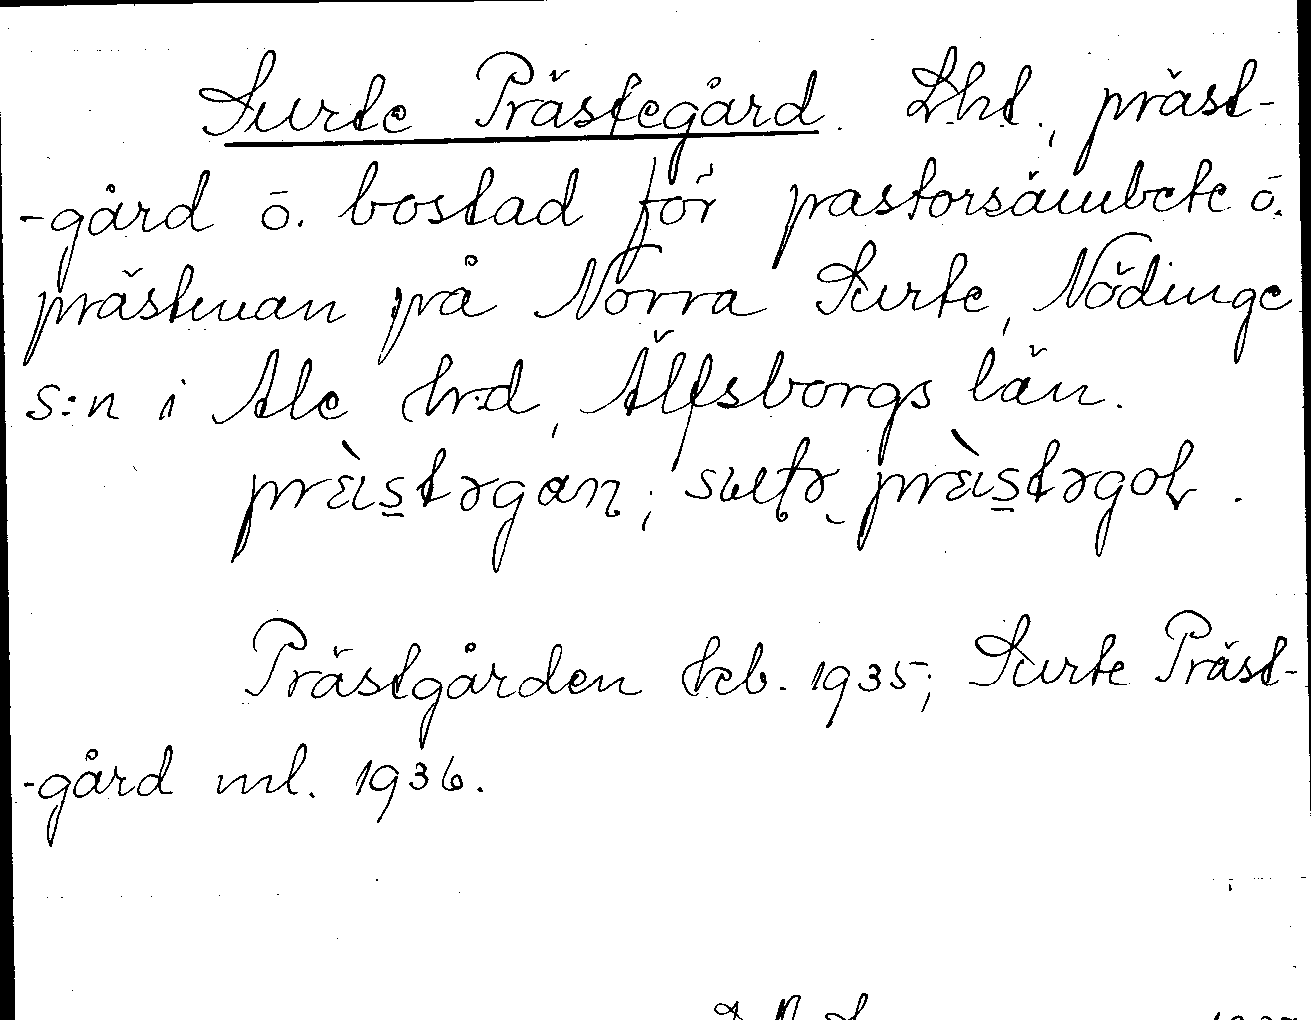 Surte Prästegård. Lht., präst-
-gård ō. bostad för pastorsämbete ō.
prästman på Norra Surte, Nödinge
s:n i Ale hrd, Älfsborgs län.
prästgården teb. 1935; Surte Präst-
-gård ml. 1936.